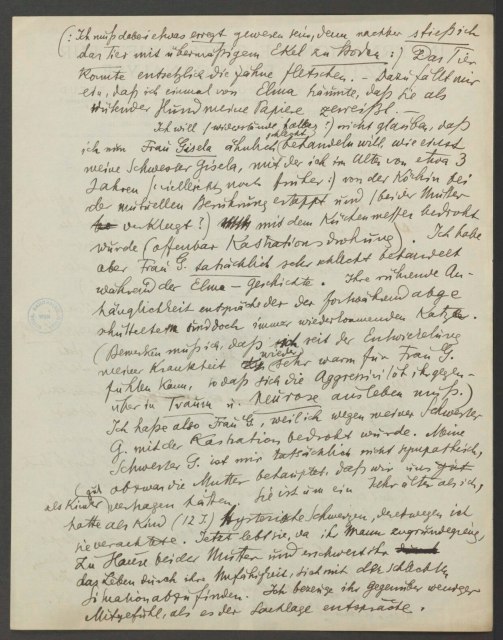 (: Ich muß dabei etwas erregt gewesen sein, denn nachher stieß ich
das Tier mit übermäßigem Ekel zu Boden :) Das Tier
konnte entsetzlich die Zähne fletschen. – Dazu fällt mir
ein, daß ich einmal von Elma träumte, daß sie als
wütender Hund meine Papiere zerreißt. –
Ich will (widerstände halber!) nicht glauben, daß
ich nun Frau Gisela ähnlich schlecht behandeln will wie einst
meine Schwester Gisela, mit der ich im Alter von etwa 3
Jahren (: vielleicht noch früher :) von der Köchin bei
der mutuellen Berührung ertappt und (bei der Mutter
verklagt?) mit dem Küchenmesser bedroht
wurde (offenbar Kastrationsdrohung). Ich habe
aber Frau G. tatsächlich sehr schlecht behandelt
während der Elma – Geschichte. Ihre rührende An-
hänglichkeit entspräche der der fortwährend abge
schüttelten und doch immer wiederkommenden Katze.
(Bemerken muß ich, daß seit der Entwickelung
meiner Krankheit wieder sehr warm für Frau G.
fühlen kann, so daß sich die Aggressivität ihr gegen-
über in Traum u. Neurose ausleben muß.)
Ich hasse also Frau G., weil ich wegen meiner Schwester
G. mit der Kastration bedroht wurde. Meine
Schwester G. ist mir tatsächlich nicht sympathisch,
obzwar die Mutter behauptet, daß wir uns
als Kinder (gut vertragen hätten. Sie ist um ein Jahr älter als ich,
hatte als Kind (12 J) hysterische Schmerzen, deretwegen ich
sie verachtete. Jetzt lebt sie, da ihr Mann zugrundegieng,
zu Hause bei der Mutter und erschwert ihr
das Leben durch ihre Unfähigkeit, sich mit der schlechten
Situation abzufinden. Ich bezeige ihr gegenüber weniger
Mitgefühl, als es der Sachlage entspräche.